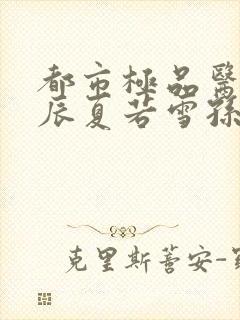 都市極品醫
辰夏若雪孫
克里斯蒂安-